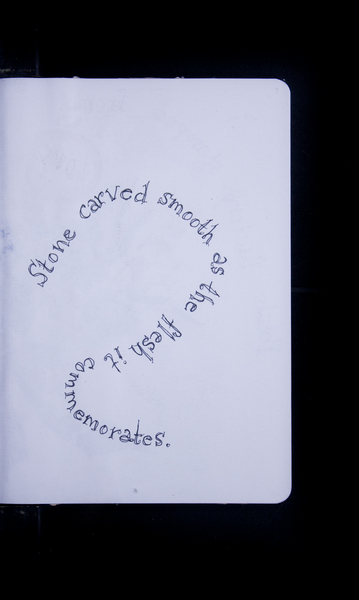 Stone carved smooth as the flesh it commemorates.